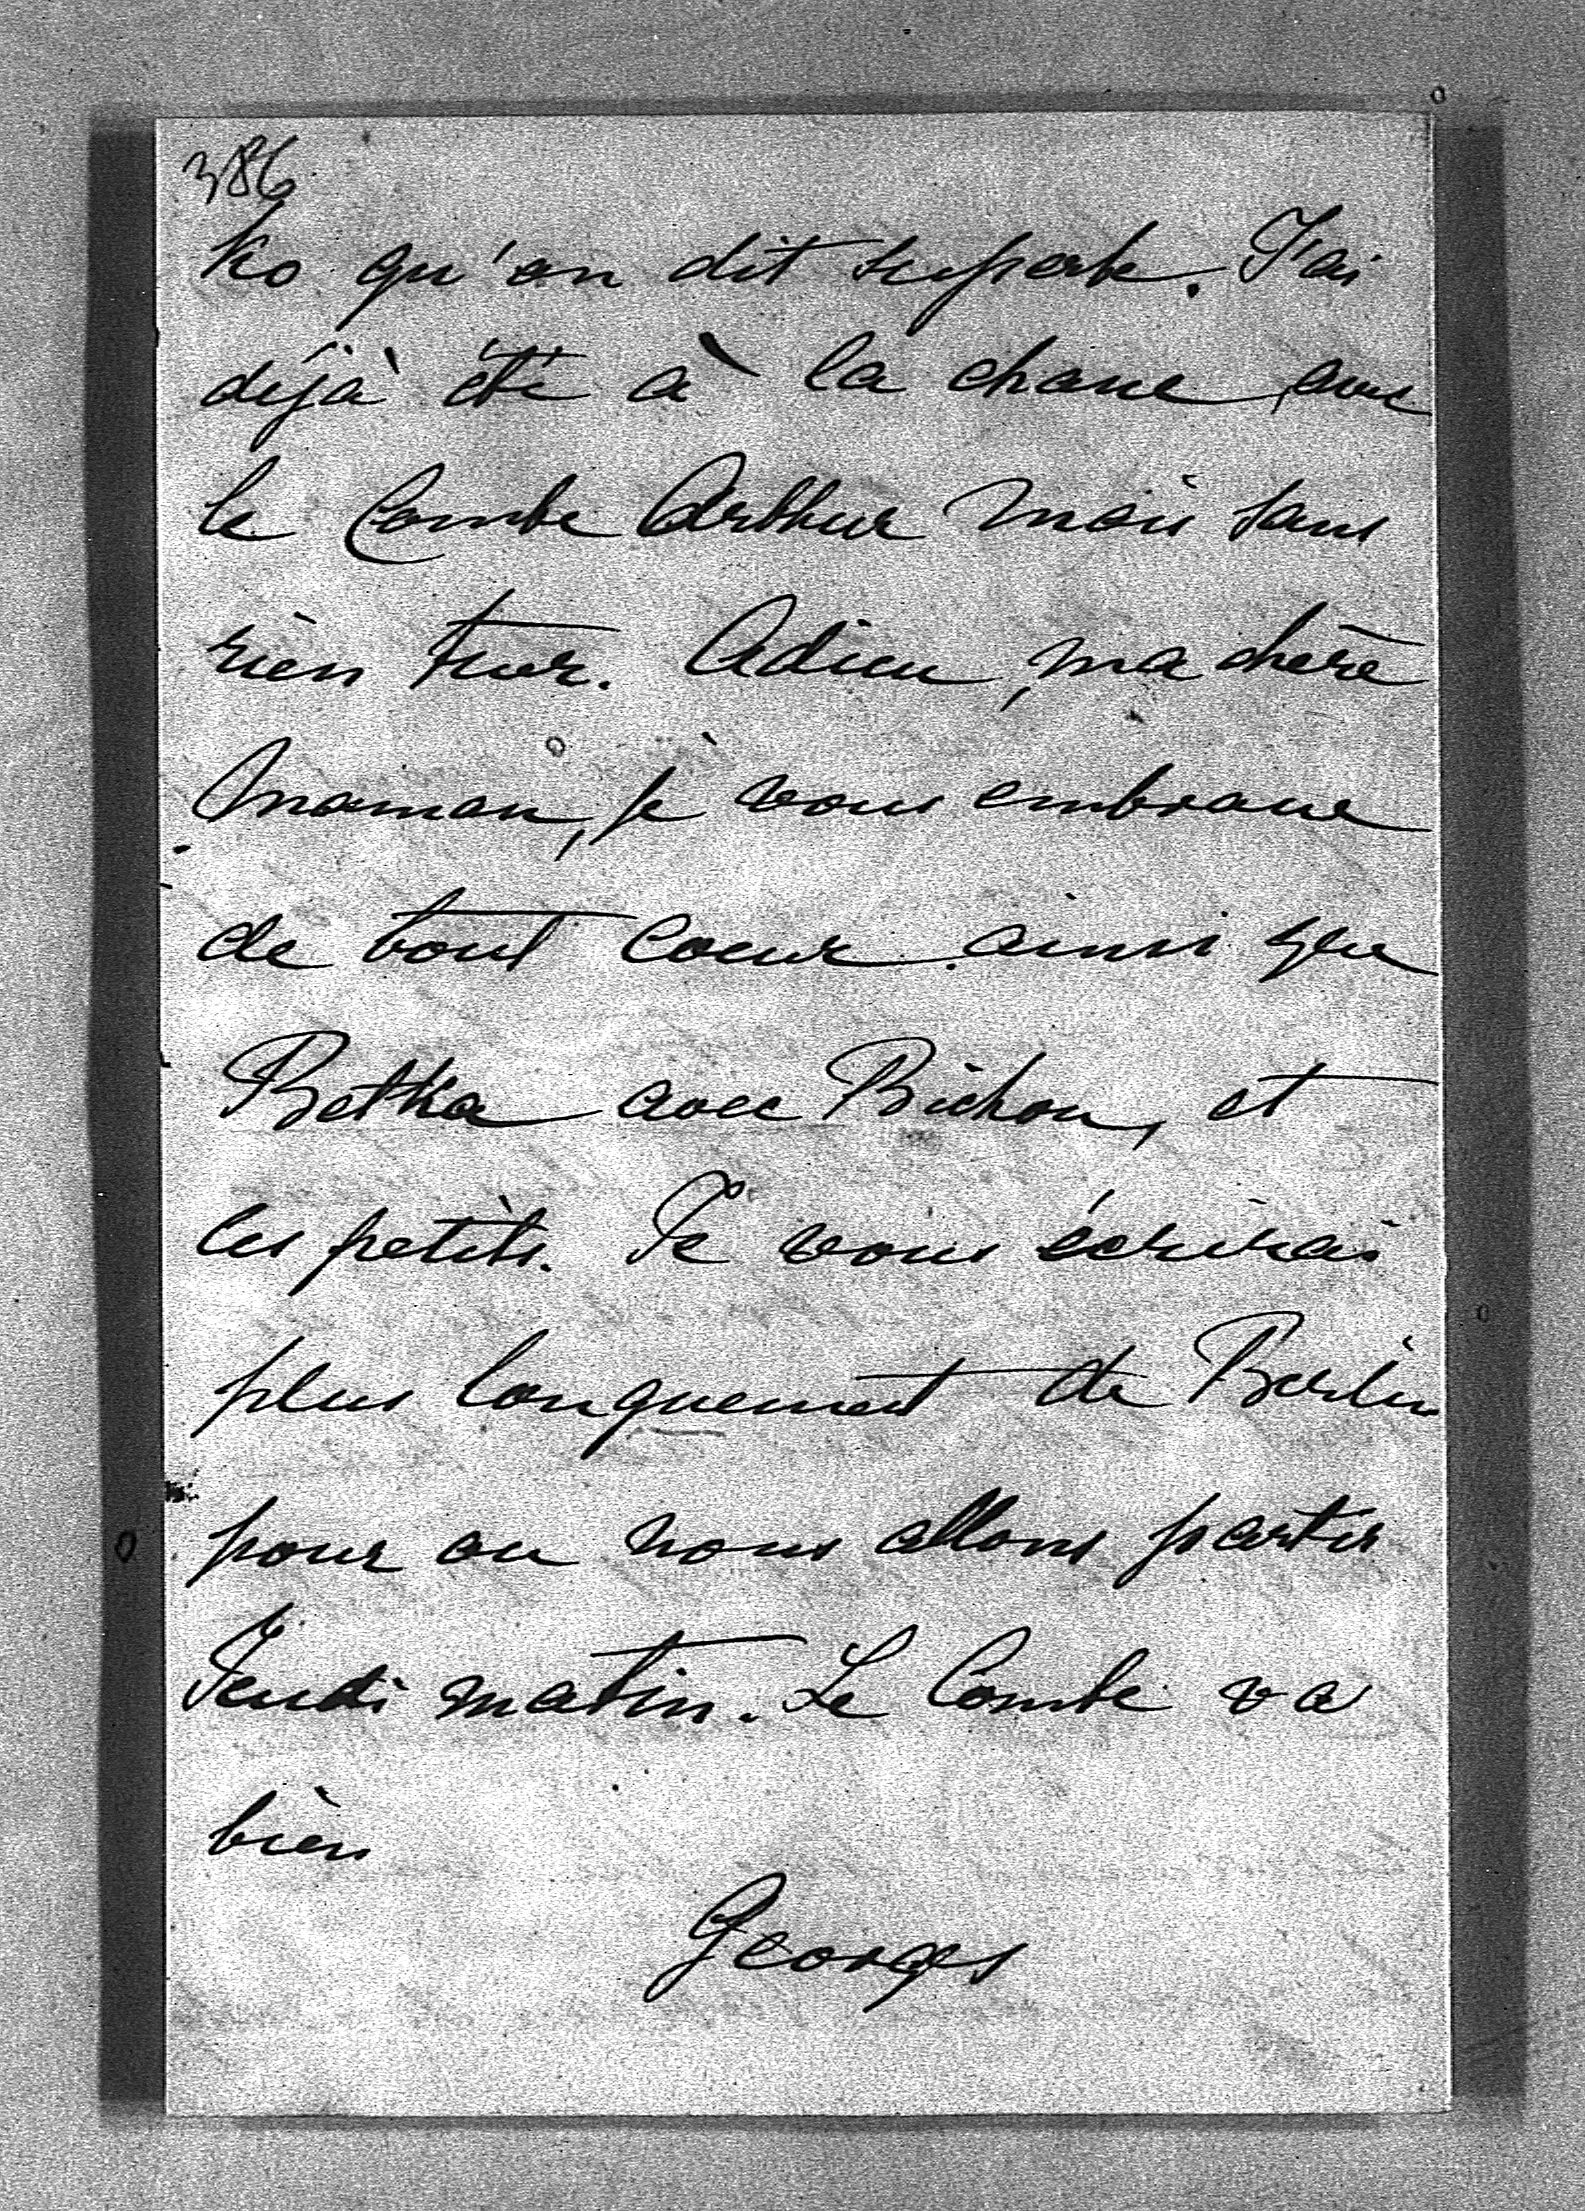 386
ko qu'on dit superbe. J'ai
déjà été à la chasse avec
le Comte Arthur mais sans
rien tuer. Adieu, ma chère
Maman, je vous embrasse
de tout coeur ainsi que
Betka avec Bichon, et
les petits. Je vous écrirai
plus longuement de Berlin
pour ou nous allons partir
Jeudi matin. Le Comte va
bien
Georges